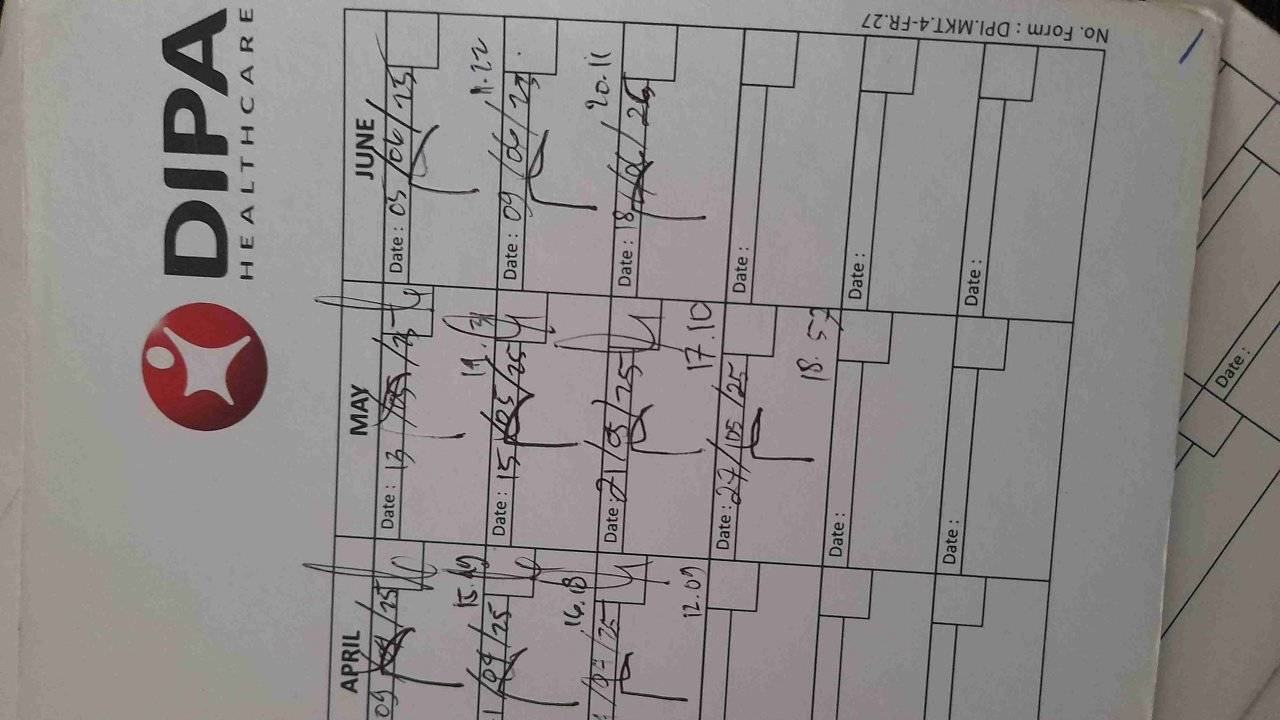 DIPA
HEALTHCARE
APRIL
09 /04 /25
15.49
/04 /25
16.18
/25
12.09
MAY
Date : 13 /05 /25
Date : 15 /05 /25
Date : 21 /05 /25
17.10
Date : 27 /05 /25
18.57
Date :
Date :
JUNE
Date : 03 /06 /25
11.22
Date : 09 /06 /25
20.11
Date : 18
Date :
Date :
Date :
No. Form : DPI.MKT.4-FR.27
Date :